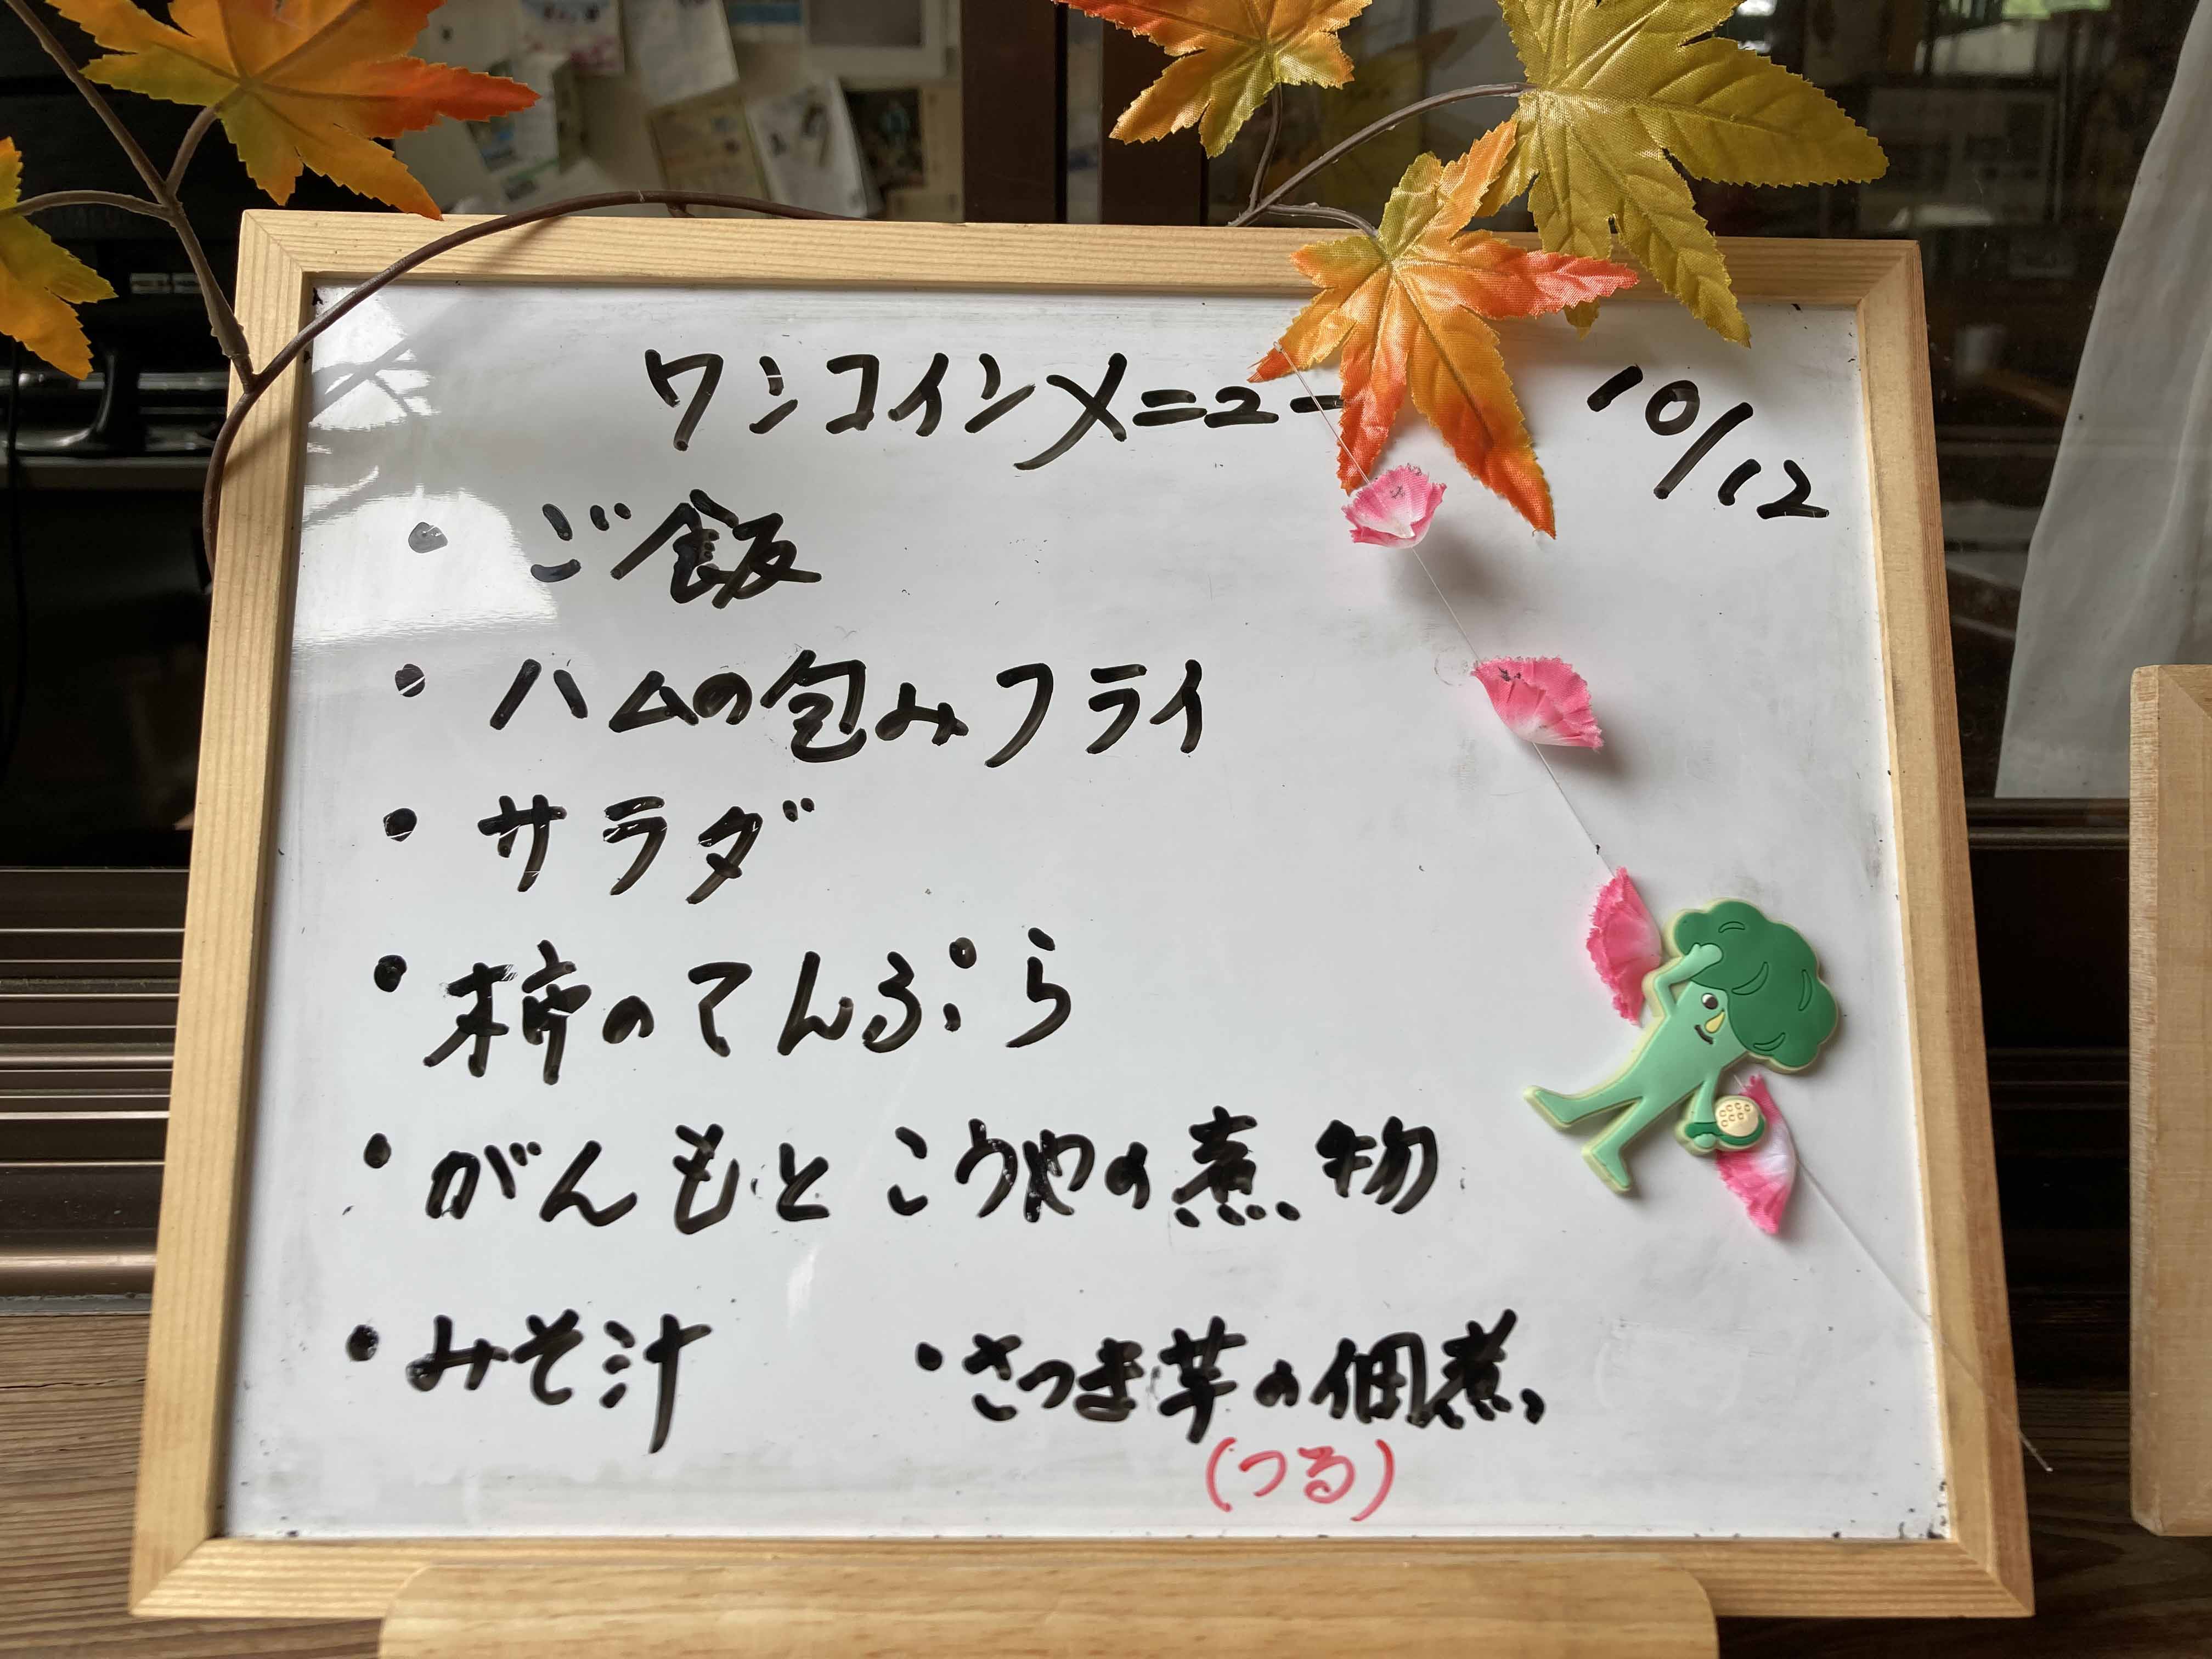 ワンコインメニュー 10/12
・ご飯
・ハムの包みフライ
・サラダ
・柿のてんぷら
・がんもとこうやの煮物
・みそ汁 ・さつま芋の佃煮
(つる)